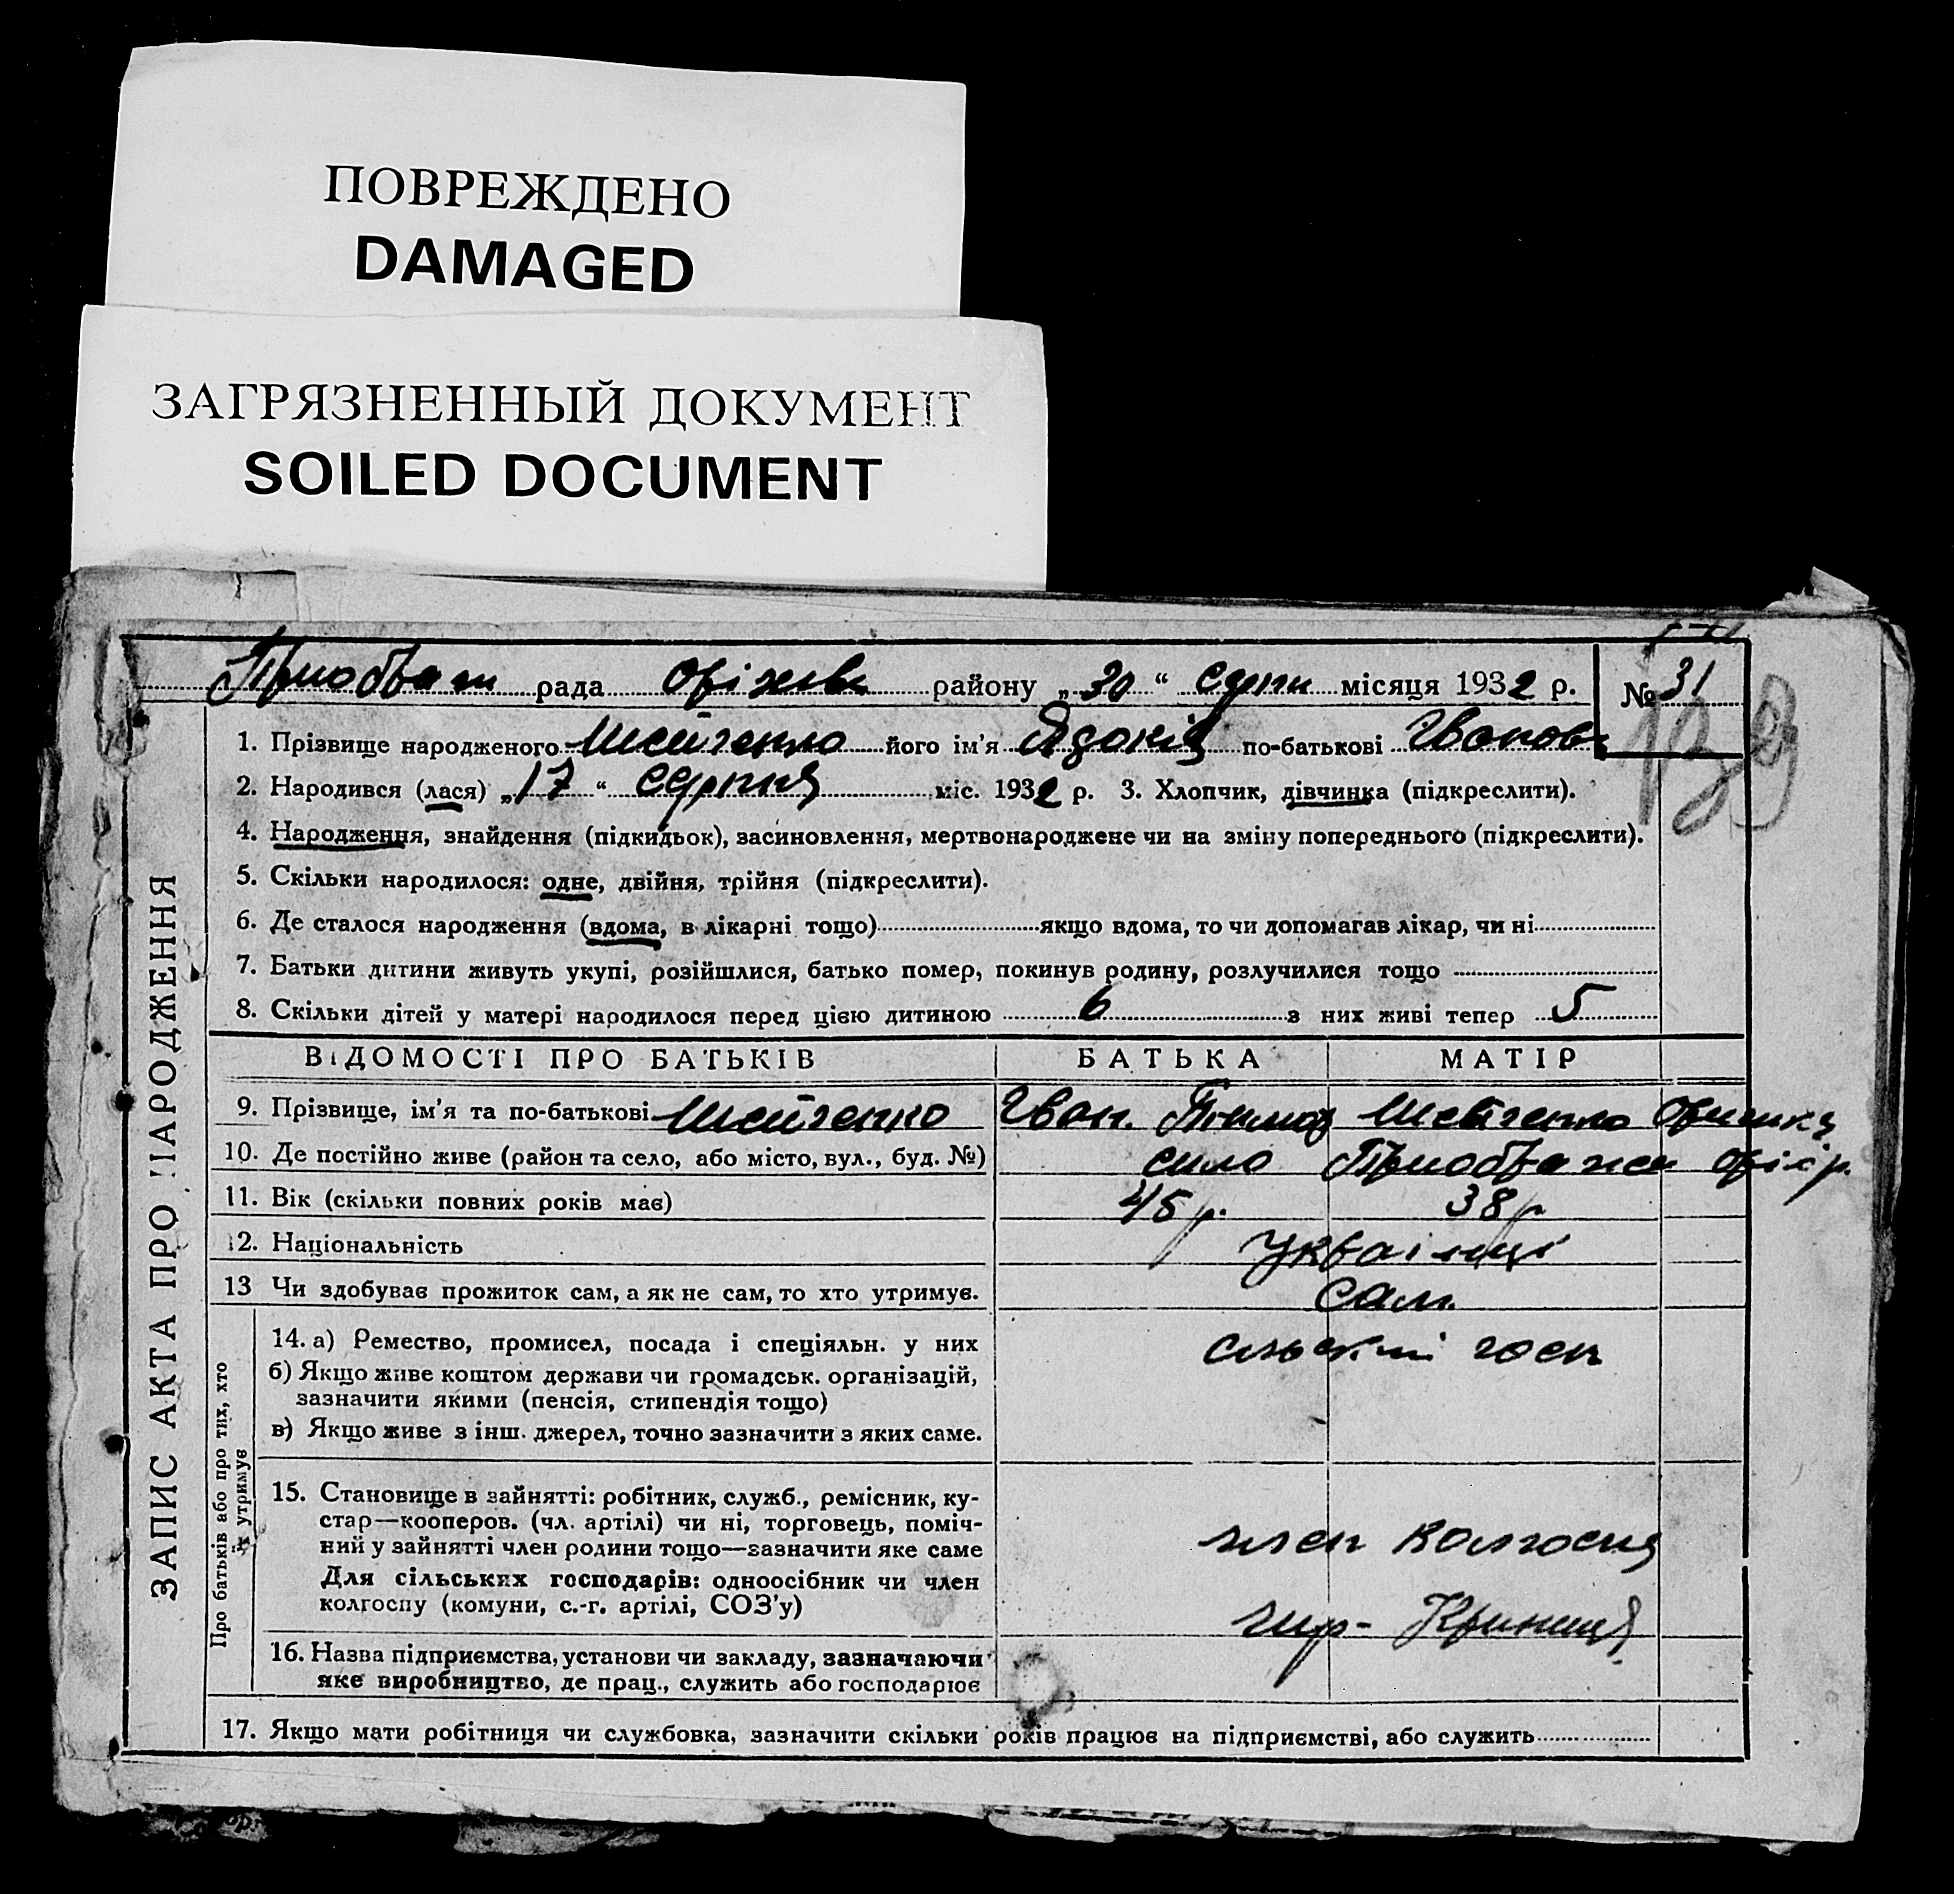 ПОВРЕЖДЕНО
DAMAGED
ЗАГРЯЗНЕННЫЙ ДОКУМЕНТ
SOILED DOCUMENT
рада району „30“ серпн місяця 1932 р. № 31
ЗАПИС АКТА ПРО НАРОДЖЕННЯ
1. Прізвище народженого його ім'я Явдокія по-батькові Іванов
2. Народився (лася) „17“ серпня міс. 1932 р. 3. Хлопчик, дівчинка (підкреслити).
4. Народження, знайдення (підкидьок), засиновлення, мертвонароджене чи на зміну попереднього (підкреслити).
5. Скільки народилося: одне, двійня, трійня (підкреслити).
6. Де сталося народження (вдома, в лікарні тощо) якщо вдома, то чи допомагав лікар, чи ні
7. Батьки дитини живуть укупі, розійшлися, батько помер, покинув родину, розлучилися тощо
8. Скільки дітей у матері народилося перед цією дитиною 6 з них живі тепер 5
ВІДОМОСТІ ПРО БАТЬКІВ БАТЬКА МАТІР
9. Прізвище, ім'я та по-батькові Іван.
10. Де постійно живе (район та село, або місто, вул., буд. №) село
11. Вік (скільки повних років має) 45 р. 38 р
12. Національність українці
13 Чи здобуває прожиток сам, а як не сам, то хто утримує. сам.
Про батьків або про тих, хто їх утримує
14. а) Ремество, промисел, посада і спеціяльн. у них сільський госп
б) Якщо живе коштом держави чи громадськ. організацій,
зазначити якими (пенсія, стипендія тощо)
в) Якщо живе з інш. джерел, точно зазначити з яких саме.
15. Становище в зайнятті: робітник, служб., ремісник, ку-
стар—кооперов. (чл. артілі) чи ні, торговець, поміч-
ний у зайнятті член родини тощо—зазначити яке саме член колгоспу
Для сільських господарів: одноосібник чи член
колгоспу (комуни, с.-г. артілі, СОЗ'у) Криниця
16. Назва підприємства, установи чи закладу, зазначаючи
яке виробництво, де прац., служить або господарює
17. Якщо мати робітниця чи службовка, зазначити скільки років працює на підприємстві, або служить